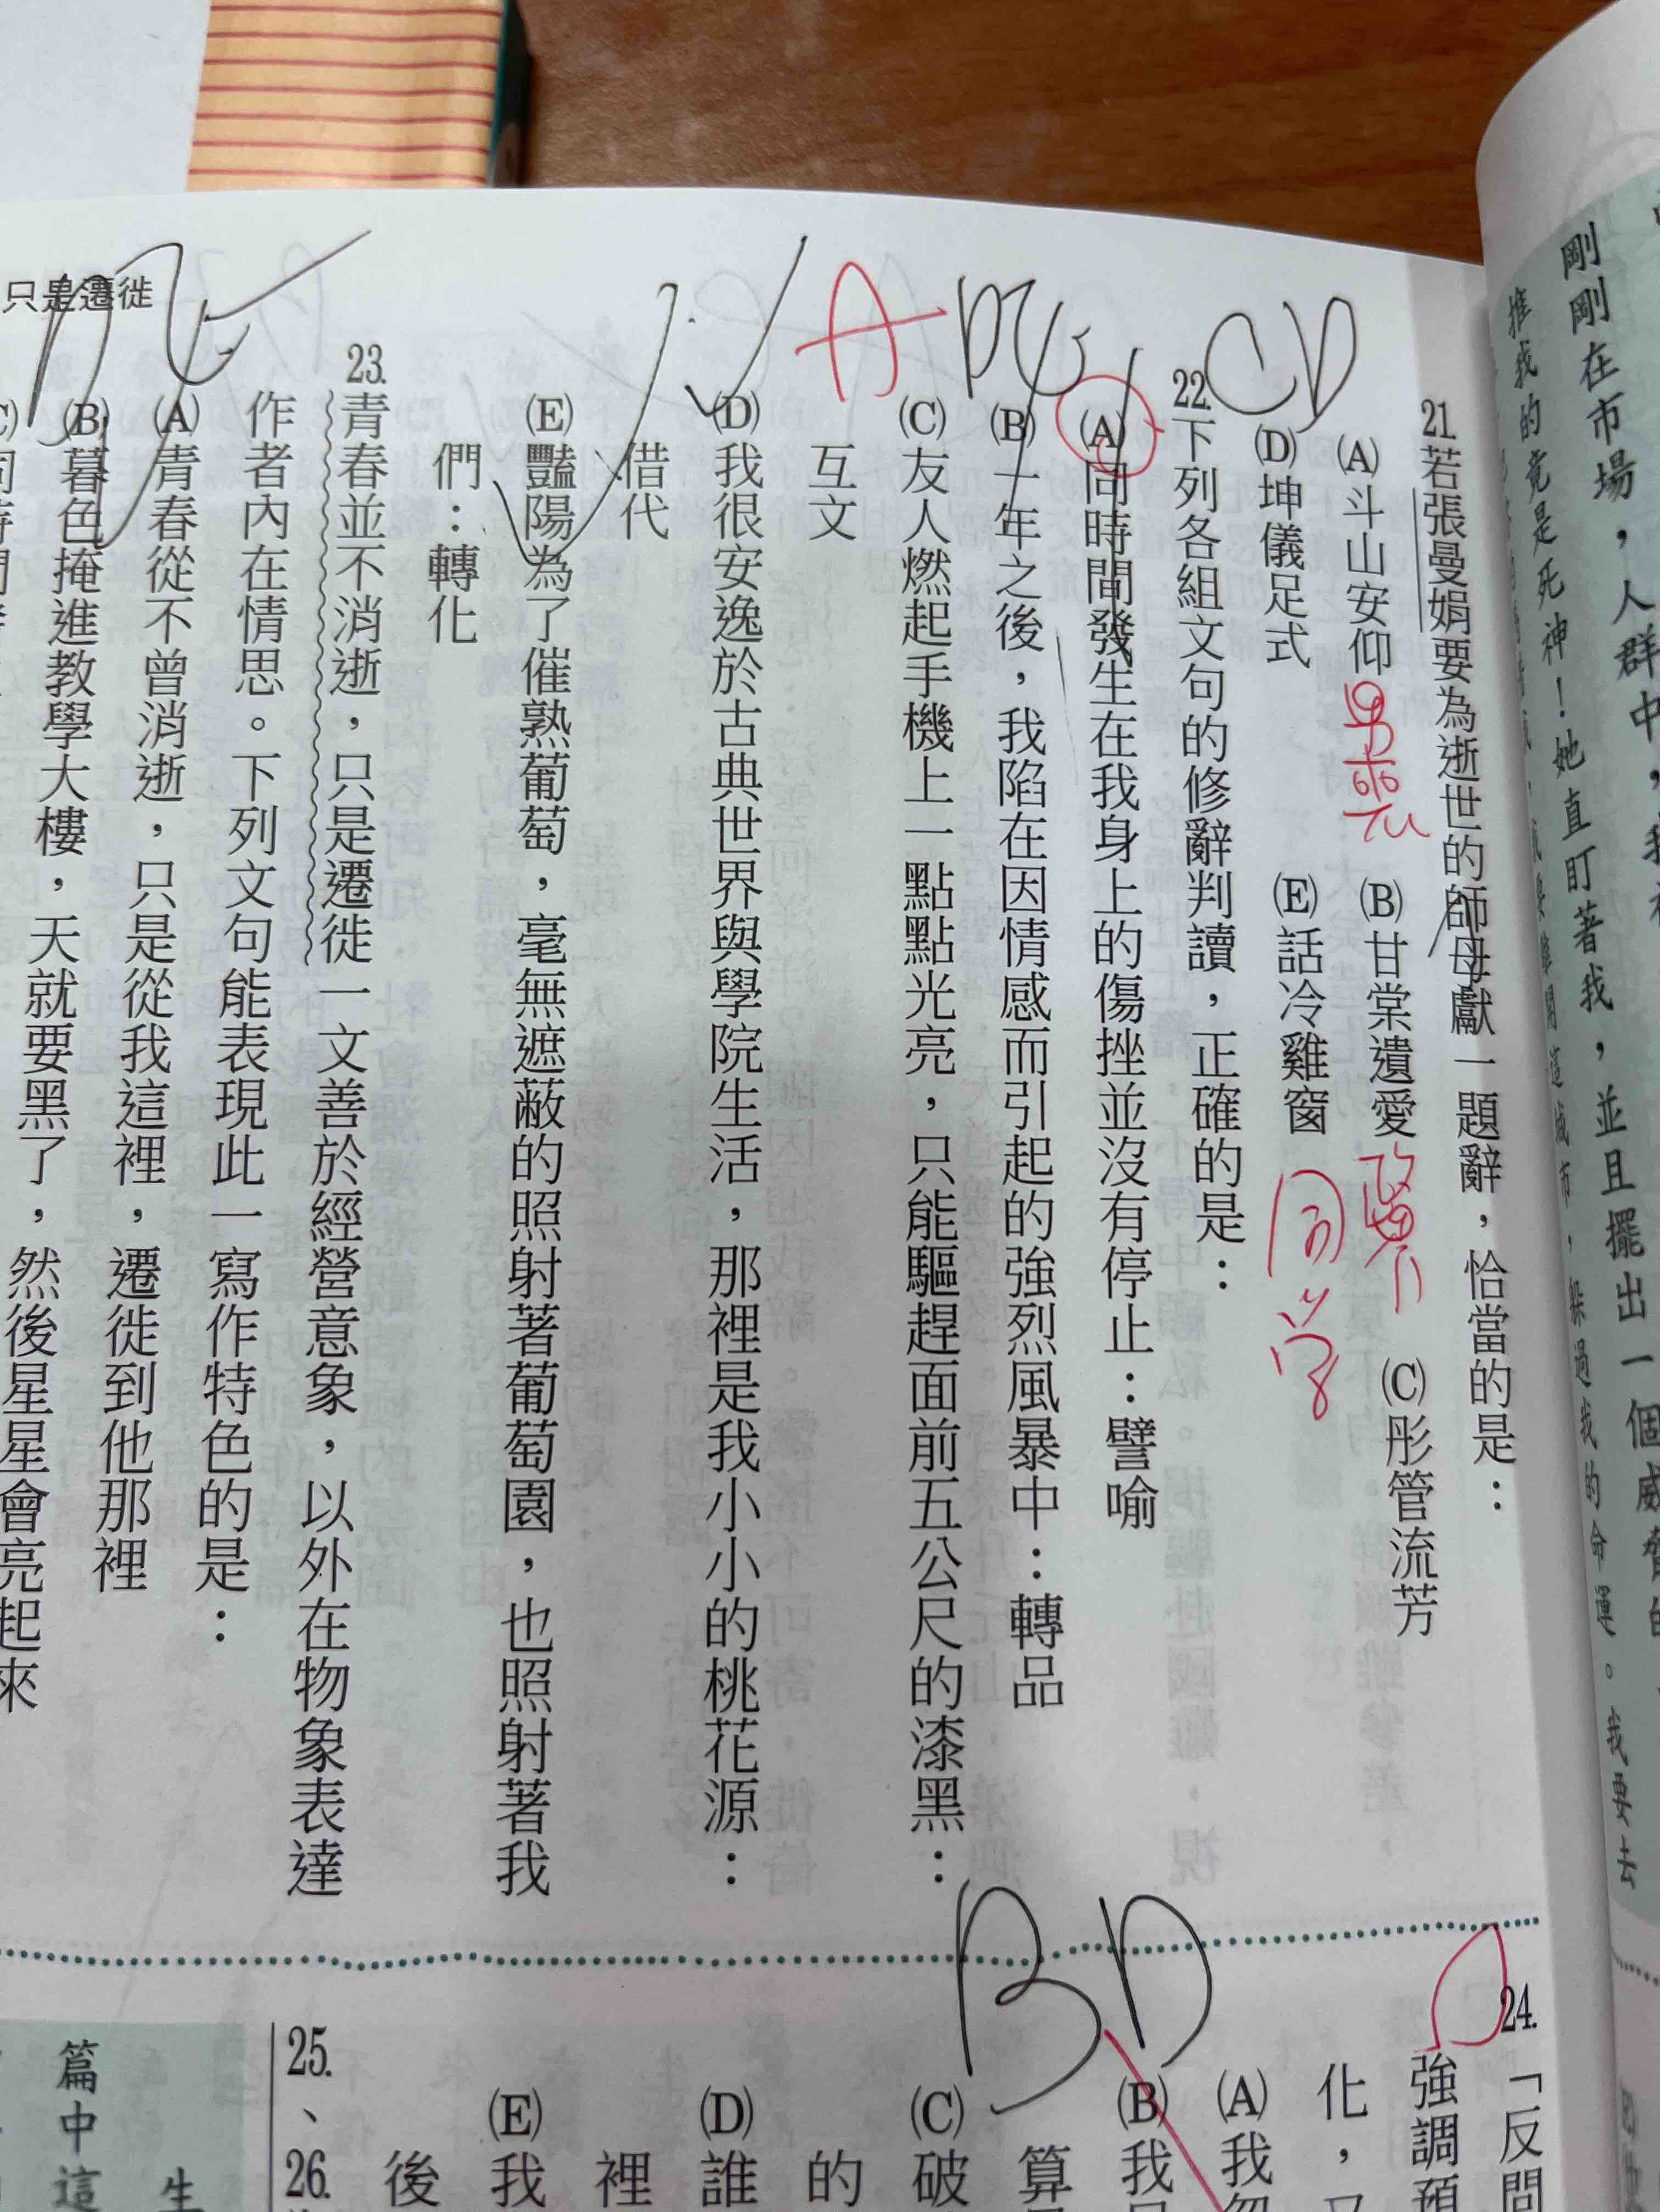 剛剛在市場，人群中，我
推我的竟是死神！她直盯著我，並且擺出一個威脅的
躲過我的命運。我要去
21.若張曼娟要為逝世的師母獻一題辭，恰當的是：
(A)斗山安仰 男喪 (B)甘棠遺愛 (C)彤管流芳
(D)坤儀足式 (E)話冷雞窗 同學
CD
22.下列各組文句的修辭判讀，正確的是：
(A)同時間發生在我身上的傷挫並沒有停止：譬喻
(B)一年之後，我陷在因情感而引起的強烈風暴中：轉品
(C)友人燃起手機上一點點光亮，只能驅趕面前五公尺的漆黑：
互文
A
(D)我很安逸於古典世界與學院生活，那裡是我小小的桃花源：
借代
(E)豔陽為了催熟葡萄，毫無遮蔽的照射著葡萄園，也照射著我
們：轉化
23.青春並不消逝，只是遷徙一文善於經營意象，以外在物象表達
作者內在情思。下列文句能表現此一寫作特色的是：
(A)青春從不曾消逝，只是從我這裡，遷徙到他那裡
(B)暮色掩進教學大樓，天就要黑了，然後星星會亮起來
只是遷徙
BD
24.「反問
強調預
化，又
(A)我
(B)我
算
(C)破
的
(D)誰
裡
(E)我
後
25.、26.
篇中這
生